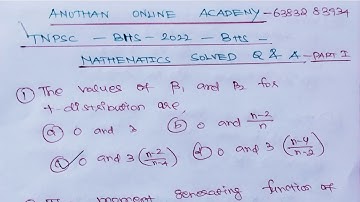 ANUTHAN ONLINE ACADEMY - 63832 83934
TNPSC - BHS - 2022 - BHS -
MATHEMATICS SOLVED Q & A - PART I
① The values of β₁ and β₂ for
t-distribution are,
ⓐ 0 and 3 ⓑ 0 and n-2/n
ⓒ 0 and 3 (n-2/n-4) ⓓ 0 and 3 (n-4/n-2)
moment generating function of